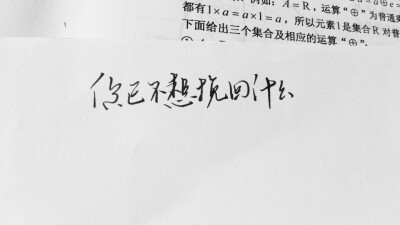 例如:A=R,运算“⊕”为普通
都有1×a=a×1=a,所以元素1是集合R对普
下面给出三个集合及相应的运算“⊕”:
你已不想挽回什么